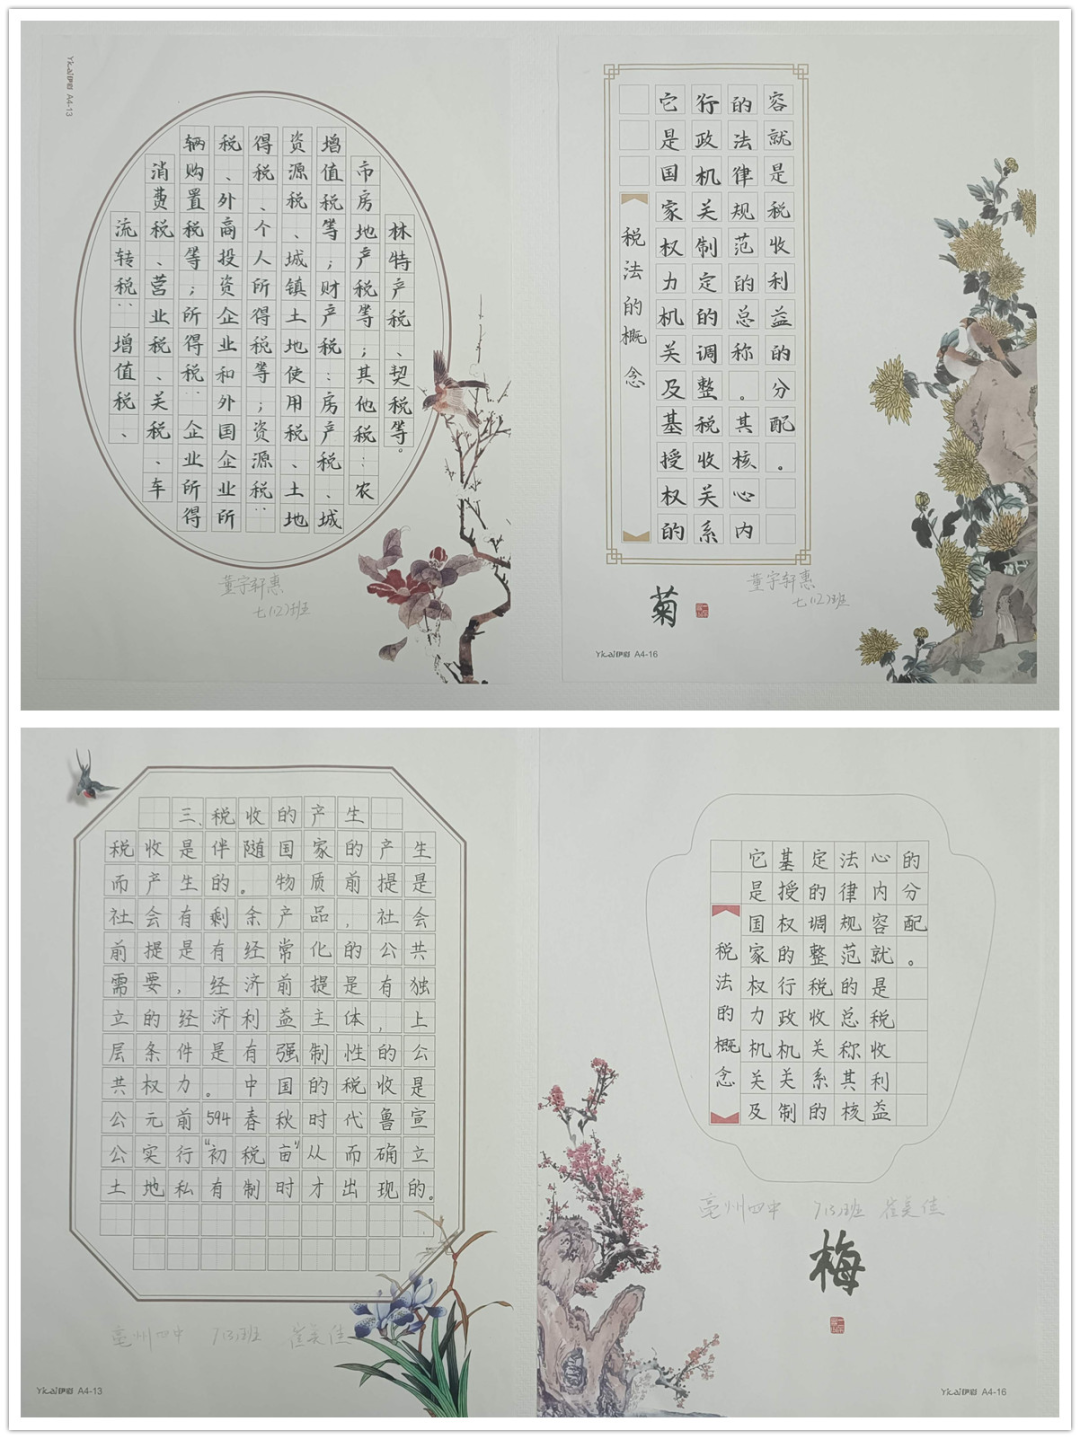 Ykai伊凯 A4-13
流转税：增值税、
消费税、营业税、关税、车
辆购置税等；所得税：企业所得
税、外商投资企业和外国企业所
得税、个人所得税等；资源税：
资源税、城镇土地使用税、土地
增值税等；财产税：房产税、城
市房地产税等；其他税：农
林特产税、契税等。
董宇轩惠
七(12)班
税法的概念
它是国家权力机关及基授权的
行政机关制定的调整税收关系
的法律规范的总称。其核心内
容就是税收利益的分配。
菊
董宇轩惠
七(12)班
Ykai伊凯 A4-16
三、税收的产生
税收是伴随国家的产生
而产生的。物质前提是
社会有剩余产品，社会
前提是有经常化的公共
需要，经济前提是有独
立的经济利益主体，上
层条件是有强制性的公
共权力。中国的税收是
公元前594春秋时代鲁宣
公实行“初税亩”从而确立
土地私有制时才出现的。
亳州四中 7(5)班 崔美佳
Ykai伊凯 A4-13
税法的概念
它是国家权力机关及
基授权的行政机关制
定的调整税收关系的
法律规范的总称其核
心内容就是税收利益
的分配。
亳州四中 7(5)班 崔美佳
梅
Ykai伊凯 A4-16